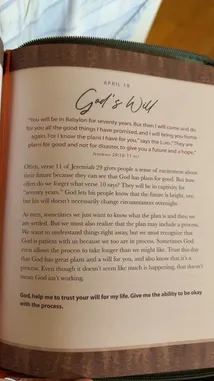 APRIL 18
God's Will
"You will be in Babylon for seventy years. But then I will come and do
for you all the good things I have promised, and I will bring you home
again. For I know the plans I have for you," says the LORD. "They are
plans for good and not for disaster, to give you a future and a hope."
Jeremiah 29:10-11 NLT
Often, verse 11 of Jeremiah 29 gives people a sense of excitement about
their future because they can see that God has plans for good. But how
often do we forget what verse 10 says? They will be in captivity for
"seventy years." God let his people know that the future is bright, yet,
but his will doesn't necessarily change circumstances overnight.
As men, sometimes we just want to know what the plan is and then we
are settled. But we must also realize that the plan may include a process.
We want to understand things right away, but we must recognize that
God is patient with us because we too are in process. Sometimes God
even allows the process to take longer than we might like. Trust this day
that God has great plans and a will for you, and also know that it's a
process. Even though it doesn't seem like much is happening, that doesn't
mean God isn't working.
God, help me to trust your will for my life. Give me the ability to be okay
with the process.